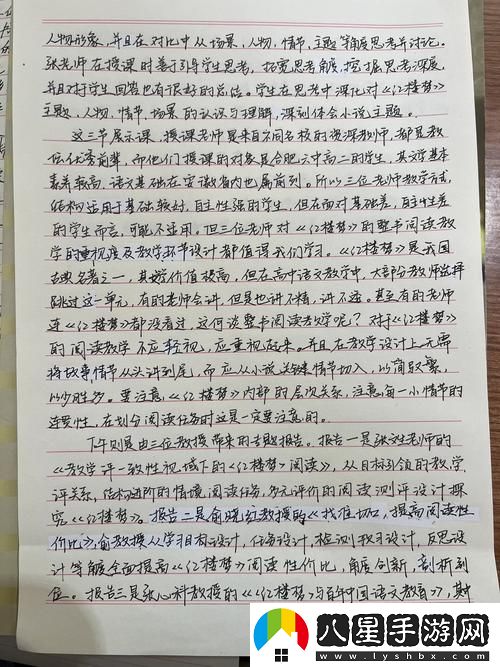 人物形象，并且在对比中从场景，人物，情节，主题等角度思考并讨论。
张老师在授课时善于引导学生思考，拓宽思考角度，挖掘思考深度，
并且对于学生回答也有很好的总结。学生在思考中深化对《红楼梦》
主题，人物，情节，场景的认识与理解，深刻体会小说主题。
这三节展示课，授课老师是来自不同名校的资深教师，都是教
坛优秀前辈，而他们授课的对象是合肥六中高二的学生，其文学基本
素养较高，语文基础在安徽省内也属前列。所以三位老师教学方式，
结构适用于基础较好，自主性强的学生，但在面对基础差，自主性差
的学生而言，可能不适用，但三位老师对《红楼梦》的整书阅读教
学的重视度及教学环节设计都值得我们学习。《红楼梦》是我国
古典名著之一，其价值极高，但在高中语文教学中，大部分教师选择
跳过这一单元，有的老师会讲，但是也讲不精，讲不透。甚至有的老师
连《红楼梦》都没看过，这何谈整书阅读教学呢？对于《红楼梦》
的阅读教学不应轻视，应重视起来。并且在教学设计上无需
将故事情节从头讲到尾，而应从小说关键情节切入，以简驭繁，
以少胜多。要注意，《红楼梦》内部的层次关系，注意每一小情节的
连贯性，在划分阅读任务时这是一定要注意的。
下午则是由三位教授带来的专题报告。报告一是张老师的
《教学评一致性视域下的《红楼梦》阅读》，从目标引领的教学
评关系，结构进阶的情境阅读任务，多元评价的阅读测评设计探
究《红楼梦》。报告二是俞晓红教授的《找准切口，提高阅读性
价比》，俞教授从学习目标设计，任务设计，检测练习设计，反思设
计等角度全面提高《红楼梦》阅读性价比，角度创新，剖析到
位。报告三是张心科教授的《《红楼梦》与百年中国语文教育》，其中
八星手游网
www.lyshbx.com